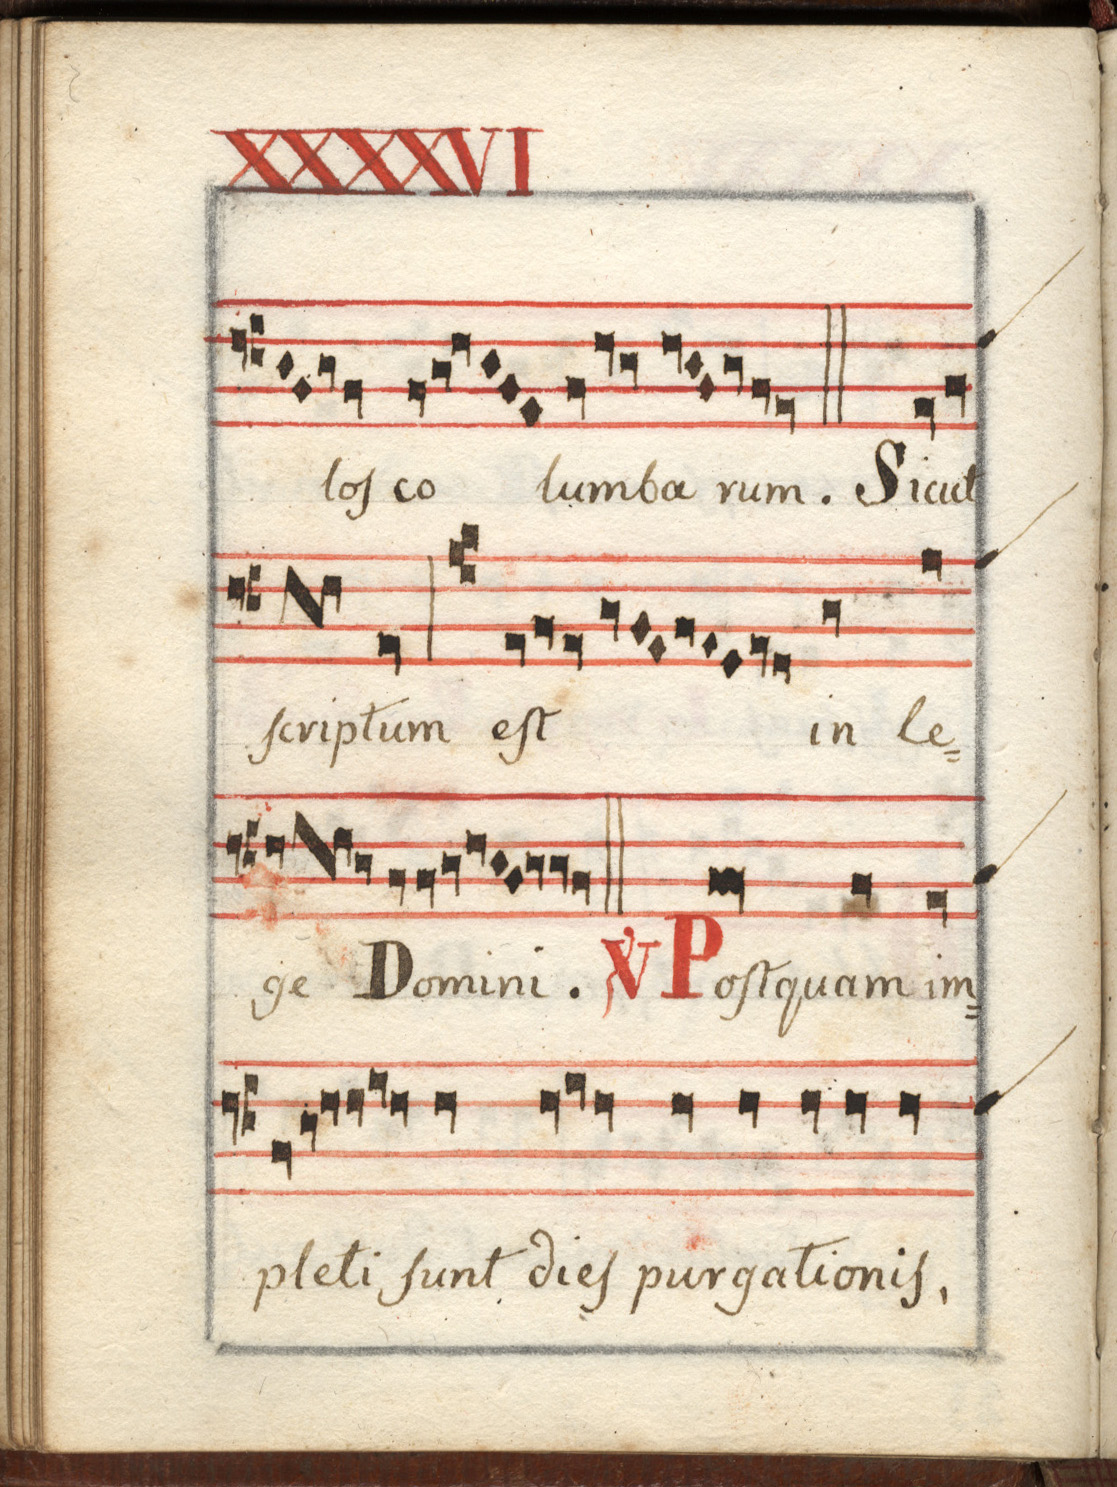 XXXXVI
los co lumba rum. Sicut
scriptum est in le=
ge Domini. ℣ Postquam im=
pleti sunt dies purgationis,